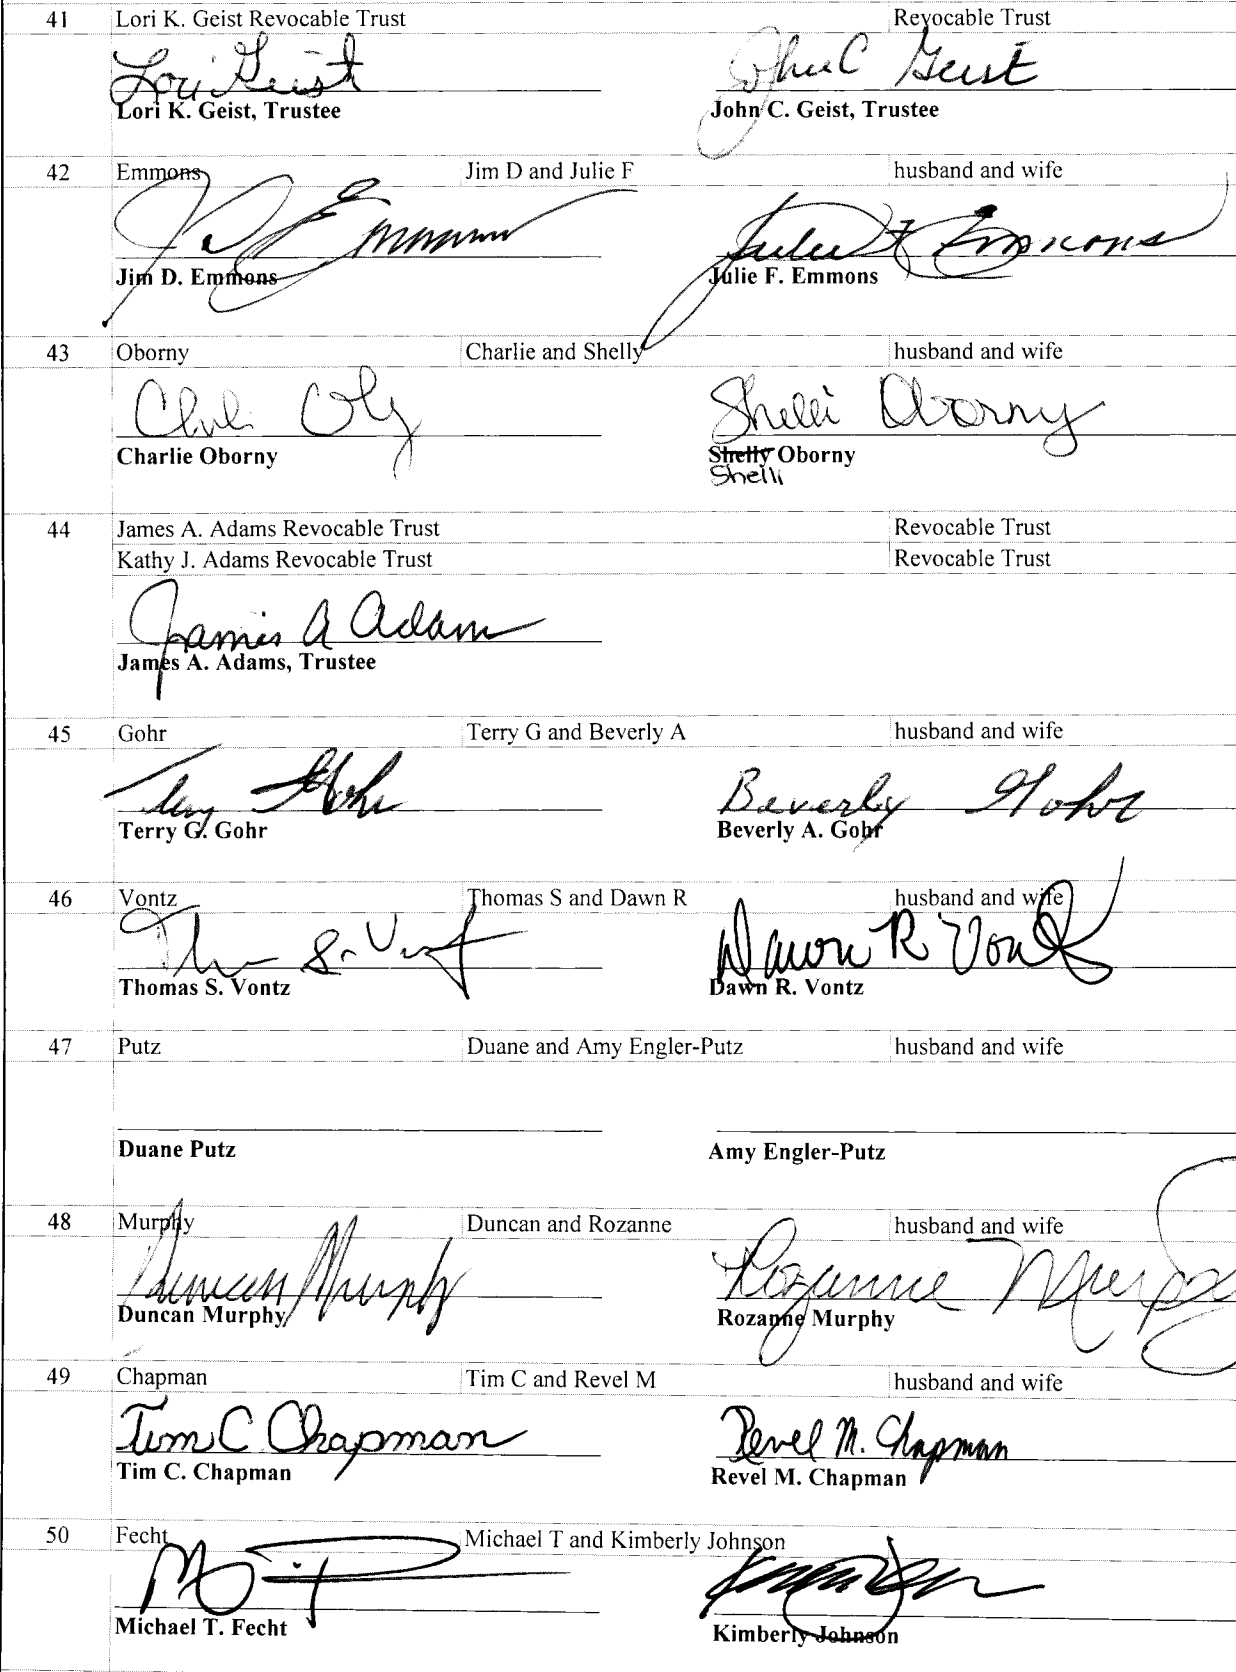 41 Lori K. Geist Revocable Trust Revocable Trust
Lori Geist John C Geist
Lori K. Geist, Trustee John C. Geist, Trustee
42 Emmons Jim D and Julie F husband and wife
J D Emmons Julie F Emmons
Jim D. Emmons Julie F. Emmons
43 Oborny Charlie and Shelly husband and wife
Shelli Oborny
Charlie Oborny Shelly Oborny
Shelli
44 James A. Adams Revocable Trust Revocable Trust
Kathy J. Adams Revocable Trust Revocable Trust
James A Adams
James A. Adams, Trustee
45 Gohr Terry G and Beverly A husband and wife
Terry Gohr Beverly Gohr
Terry G. Gohr Beverly A. Gohr
46 Vontz Thomas S and Dawn R husband and wife
S. Vontz Dawn R Vontz
Thomas S. Vontz Dawn R. Vontz
47 Putz Duane and Amy Engler-Putz husband and wife
Duane Putz Amy Engler-Putz
48 Murphy Duncan and Rozanne husband and wife
Duncan Murphy Rozanne Murphy
Duncan Murphy Rozanne Murphy
49 Chapman Tim C and Revel M husband and wife
Tim C Chapman Revel M. Chapman
Tim C. Chapman Revel M. Chapman
50 Fecht Michael T and Kimberly Johnson
Michael T. Fecht Kimberly Johnson